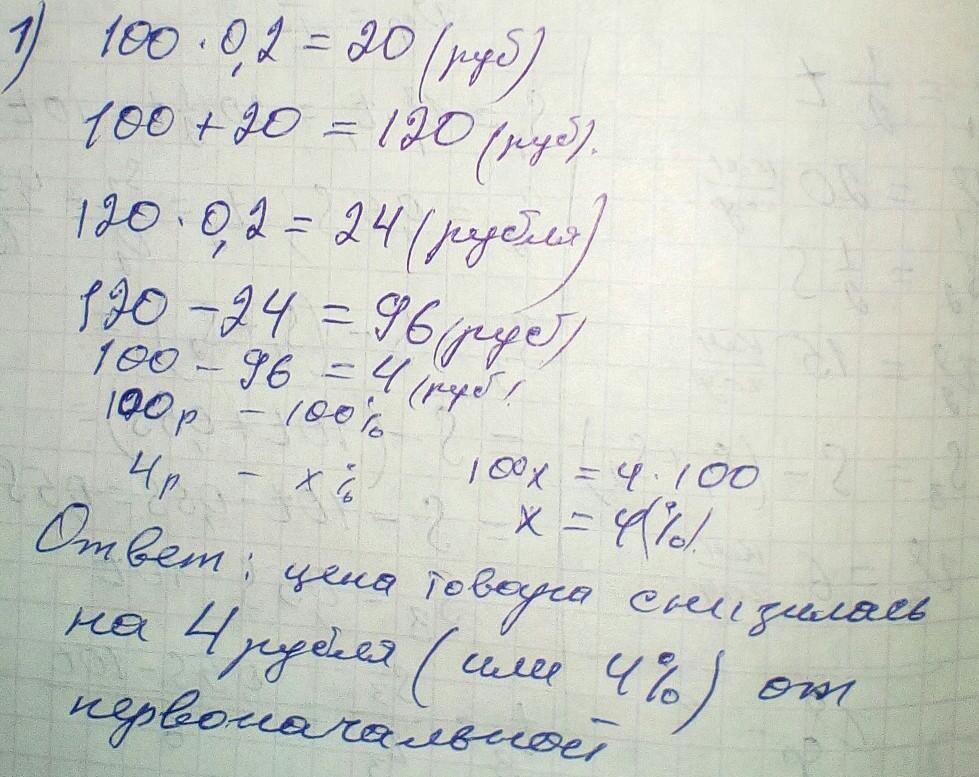 1) 100 · 0,2 = 20 (руб)
100 + 20 = 120 (руб).
120 · 0,2 = 24 (рубля)
120 - 24 = 96 (руб)
100 - 96 = 4 (руб)
100р - 100%
4р - х% 100х = 4 · 100
х = 4(%).
Ответ: цена товара снизилась
на 4 рубля (или 4%) от
первоначальной